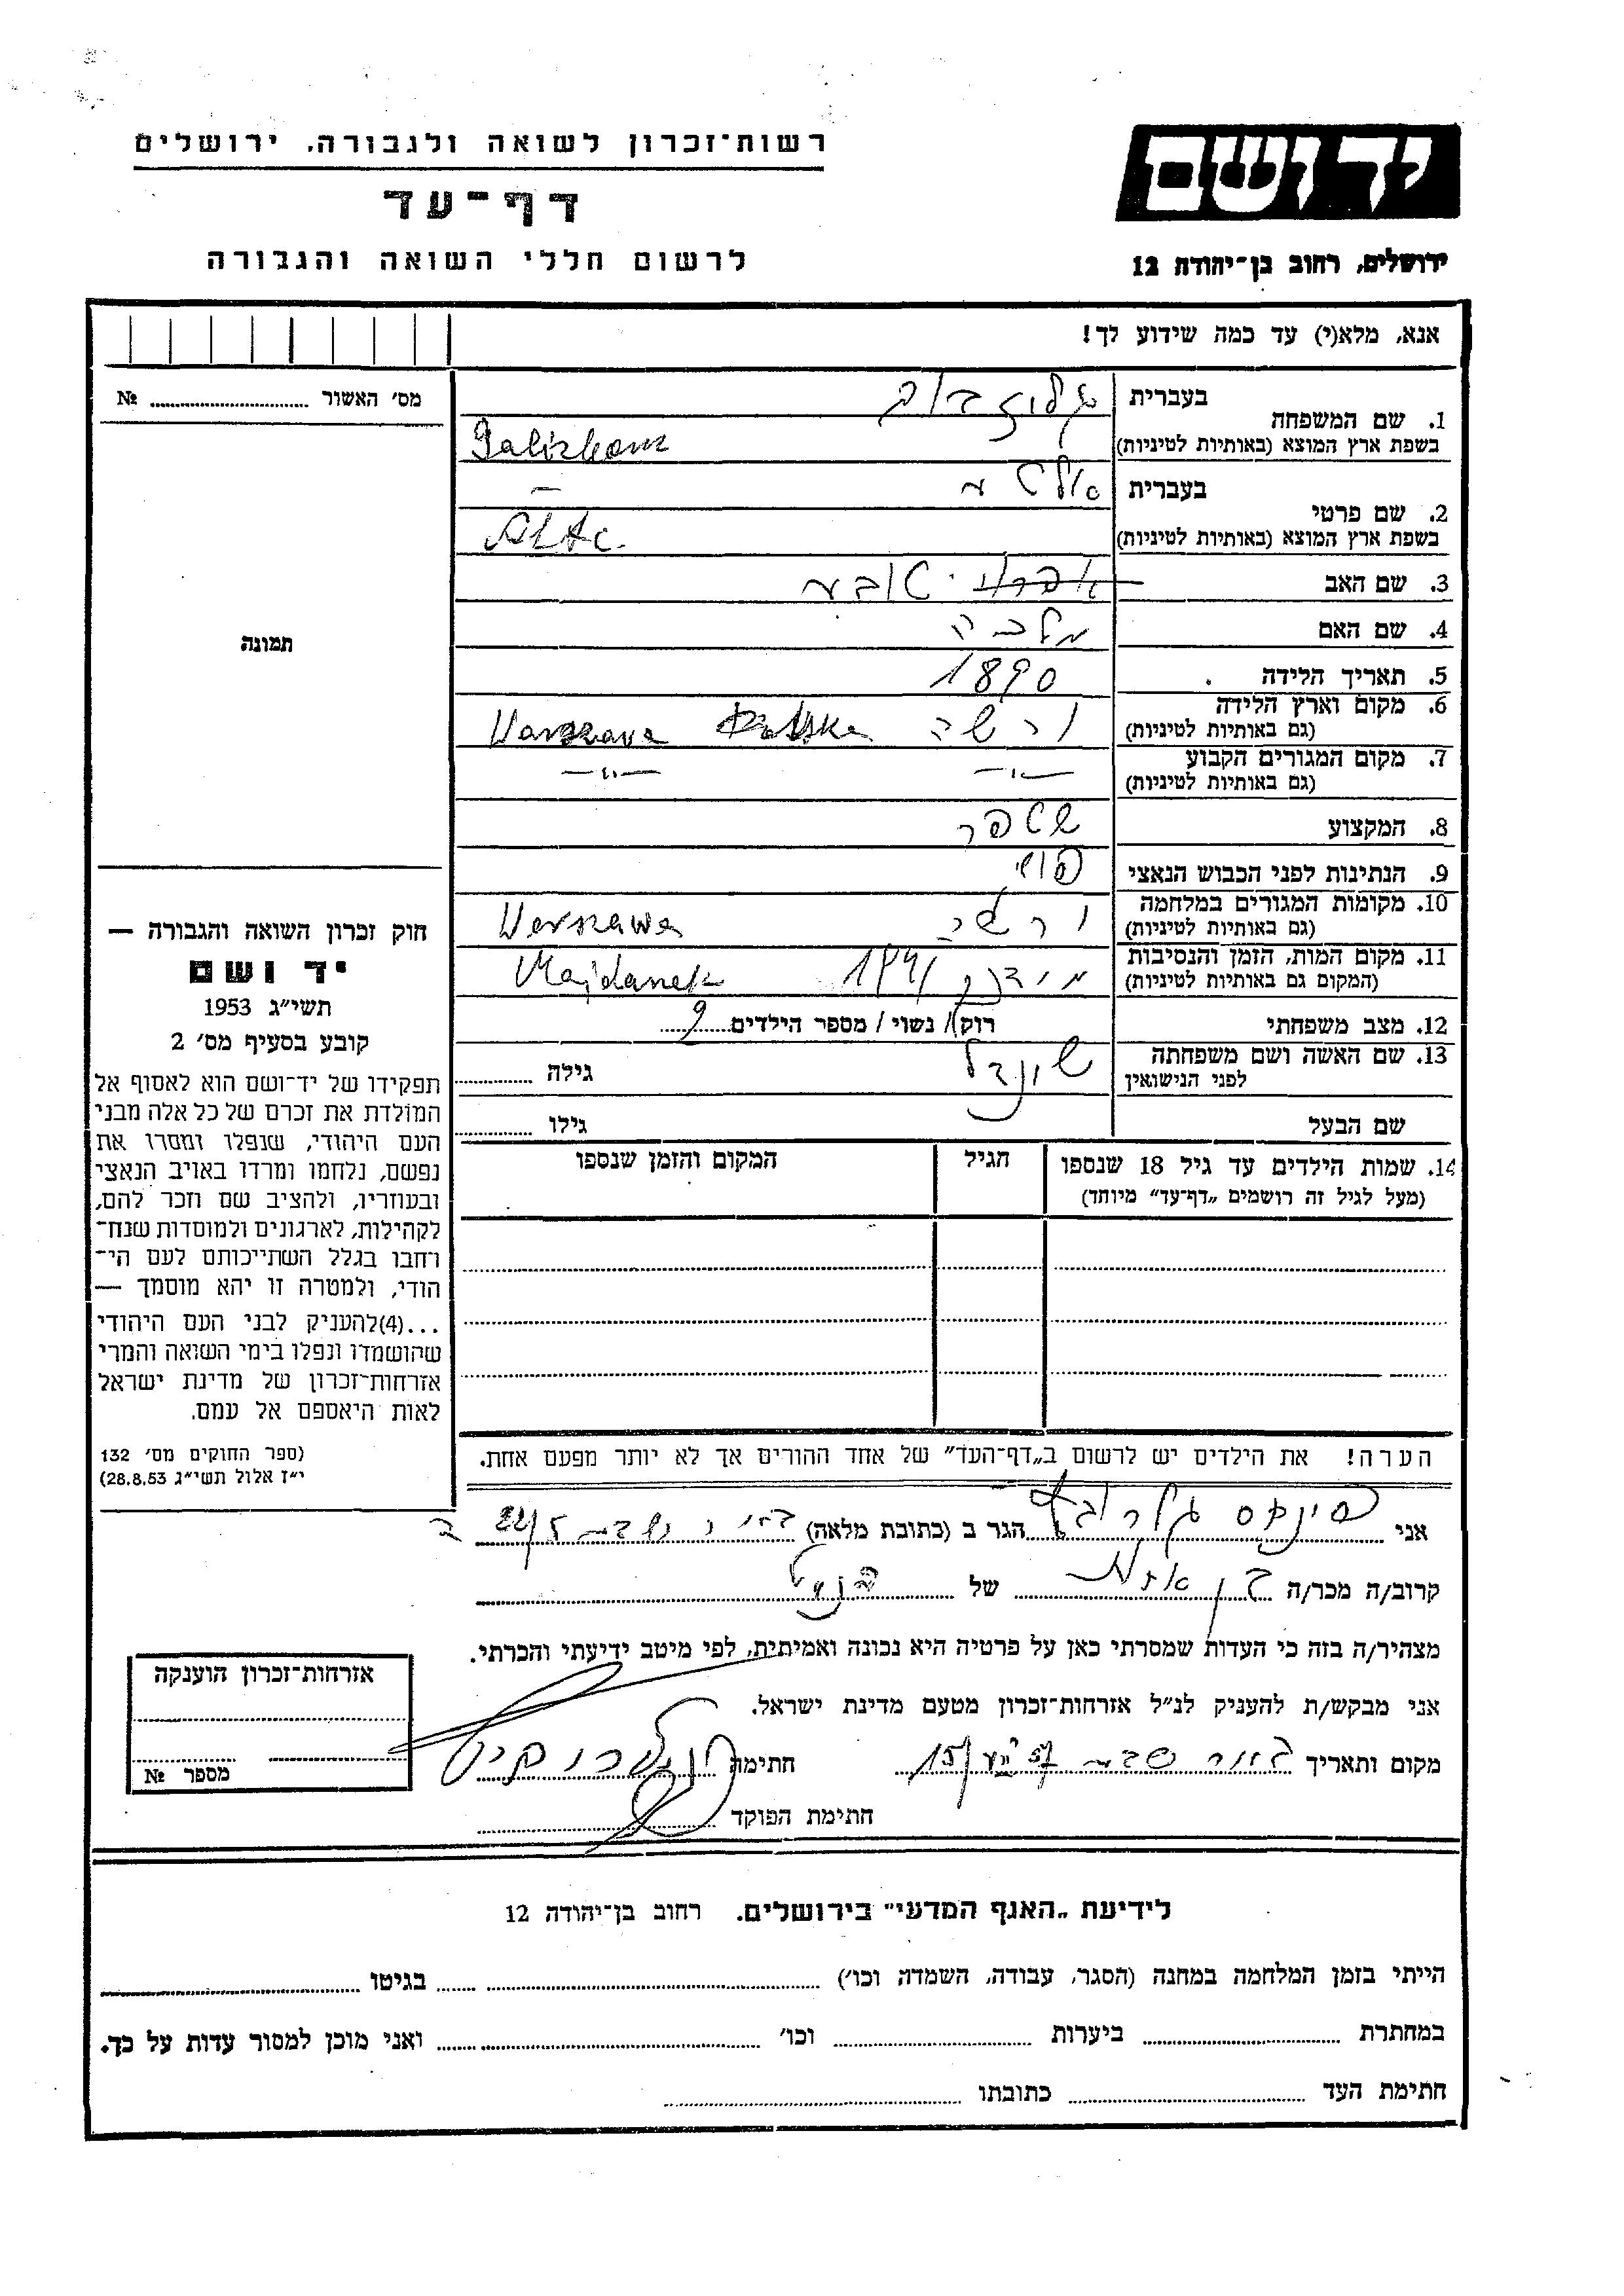 רשות־זכרון לשואה ולגבורה, ירושלים
יד ושם
דף־עד
לרשום חללי השואה והגבורה
ירושלים, רחוב בן־יהודה 12
אנא, מלא(י) עד כמה שידוע לך!
מס׳ האשור № ........
1. שם המשפחה בעברית
בשפת ארץ המוצא (באותיות לטיניות)
2. שם פרטי בעברית
בשפת ארץ המוצא (באותיות לטיניות)
3. שם האב
4. שם האם מלכה
5. תאריך הלידה 1890
6. מקום וארץ הלידה ורשה Polska Warszawa
(גם באותיות לטיניות)
7. מקום המגורים הקבוע —״— —״—
(גם באותיות לטיניות)
8. המקצוע
9. הנתינות לפני הכבוש הנאצי
10. מקומות המגורים במלחמה ורשה Warszawa
(גם באותיות לטיניות)
11. מקום המות, הזמן והנסיבות מידנק 1941 Majdanek
(המקום גם באותיות לטיניות)
12. מצב משפחתי רוק/ נשוי/ מספר הילדים
13. שם האשה ושם משפחתה
לפני הנישואין גילה ........
שם הבעל גילו ........
14. שמות הילדים עד גיל 18 שנספו הגיל המקום והזמן שנספו
(מעל לגיל זה רושמים „דף־עד” מיוחד)
הערה! את הילדים יש לרשום ב„דף־העד” של אחד ההורים אך לא יותר מפעם אחת.
תמונה
חוק זכרון השואה והגבורה —
יד ושם
תשי״ג 1953
קובע בסעיף מס׳ 2
תפקידו של יד־ושם הוא לאסוף אל
המולדת את זכרם של כל אלה מבני
העם היהודי, שנפלו ומסרו את
נפשם, נלחמו ומרדו באויב הנאצי
ובעוזריו, ולהציב שם וזכר להם,
לקהילות, לארגונים ולמוסדות שנח־
רחבו בגלל השתייכותם לעם הי־
הודי, ולמטרה זו יהא מוסמך —
...(4)להעניק לבני העם היהודי
שהושמדו ונפלו בימי השואה והמרי
אזרחות־זכרון של מדינת ישראל
לאות היאספם אל עמם.
(ספר החוקים מס׳ 132
י״ז אלול תשי״ג 28.8.53)
אני פינחס הגר ב (כתובת מלאה)
קרוב/ה מכר/ה של
מצהיר/ה בזה כי העדות שמסרתי כאן על פרטיה היא נכונה ואמיתית, לפי מיטב ידיעתי והכרתי.
אני מבקש/ת להעניק לנ״ל אזרחות־זכרון מטעם מדינת ישראל.
מקום ותאריך באר שבע חתימה
חתימת הפוקד
אזרחות־זכרון הוענקה
מספר №
לידיעת „האגף המדעי” בירושלים. רחוב בן־יהודה 12
הייתי בזמן המלחמה במחנה (הסגר, עבודה, השמדה וכו׳) ........ בגיטו ........
במחתרת ........ ביערות ........ וכו׳ ........ ואני מוכן למסור עדות על כך.
חתימת העד ........ כתובתו ........